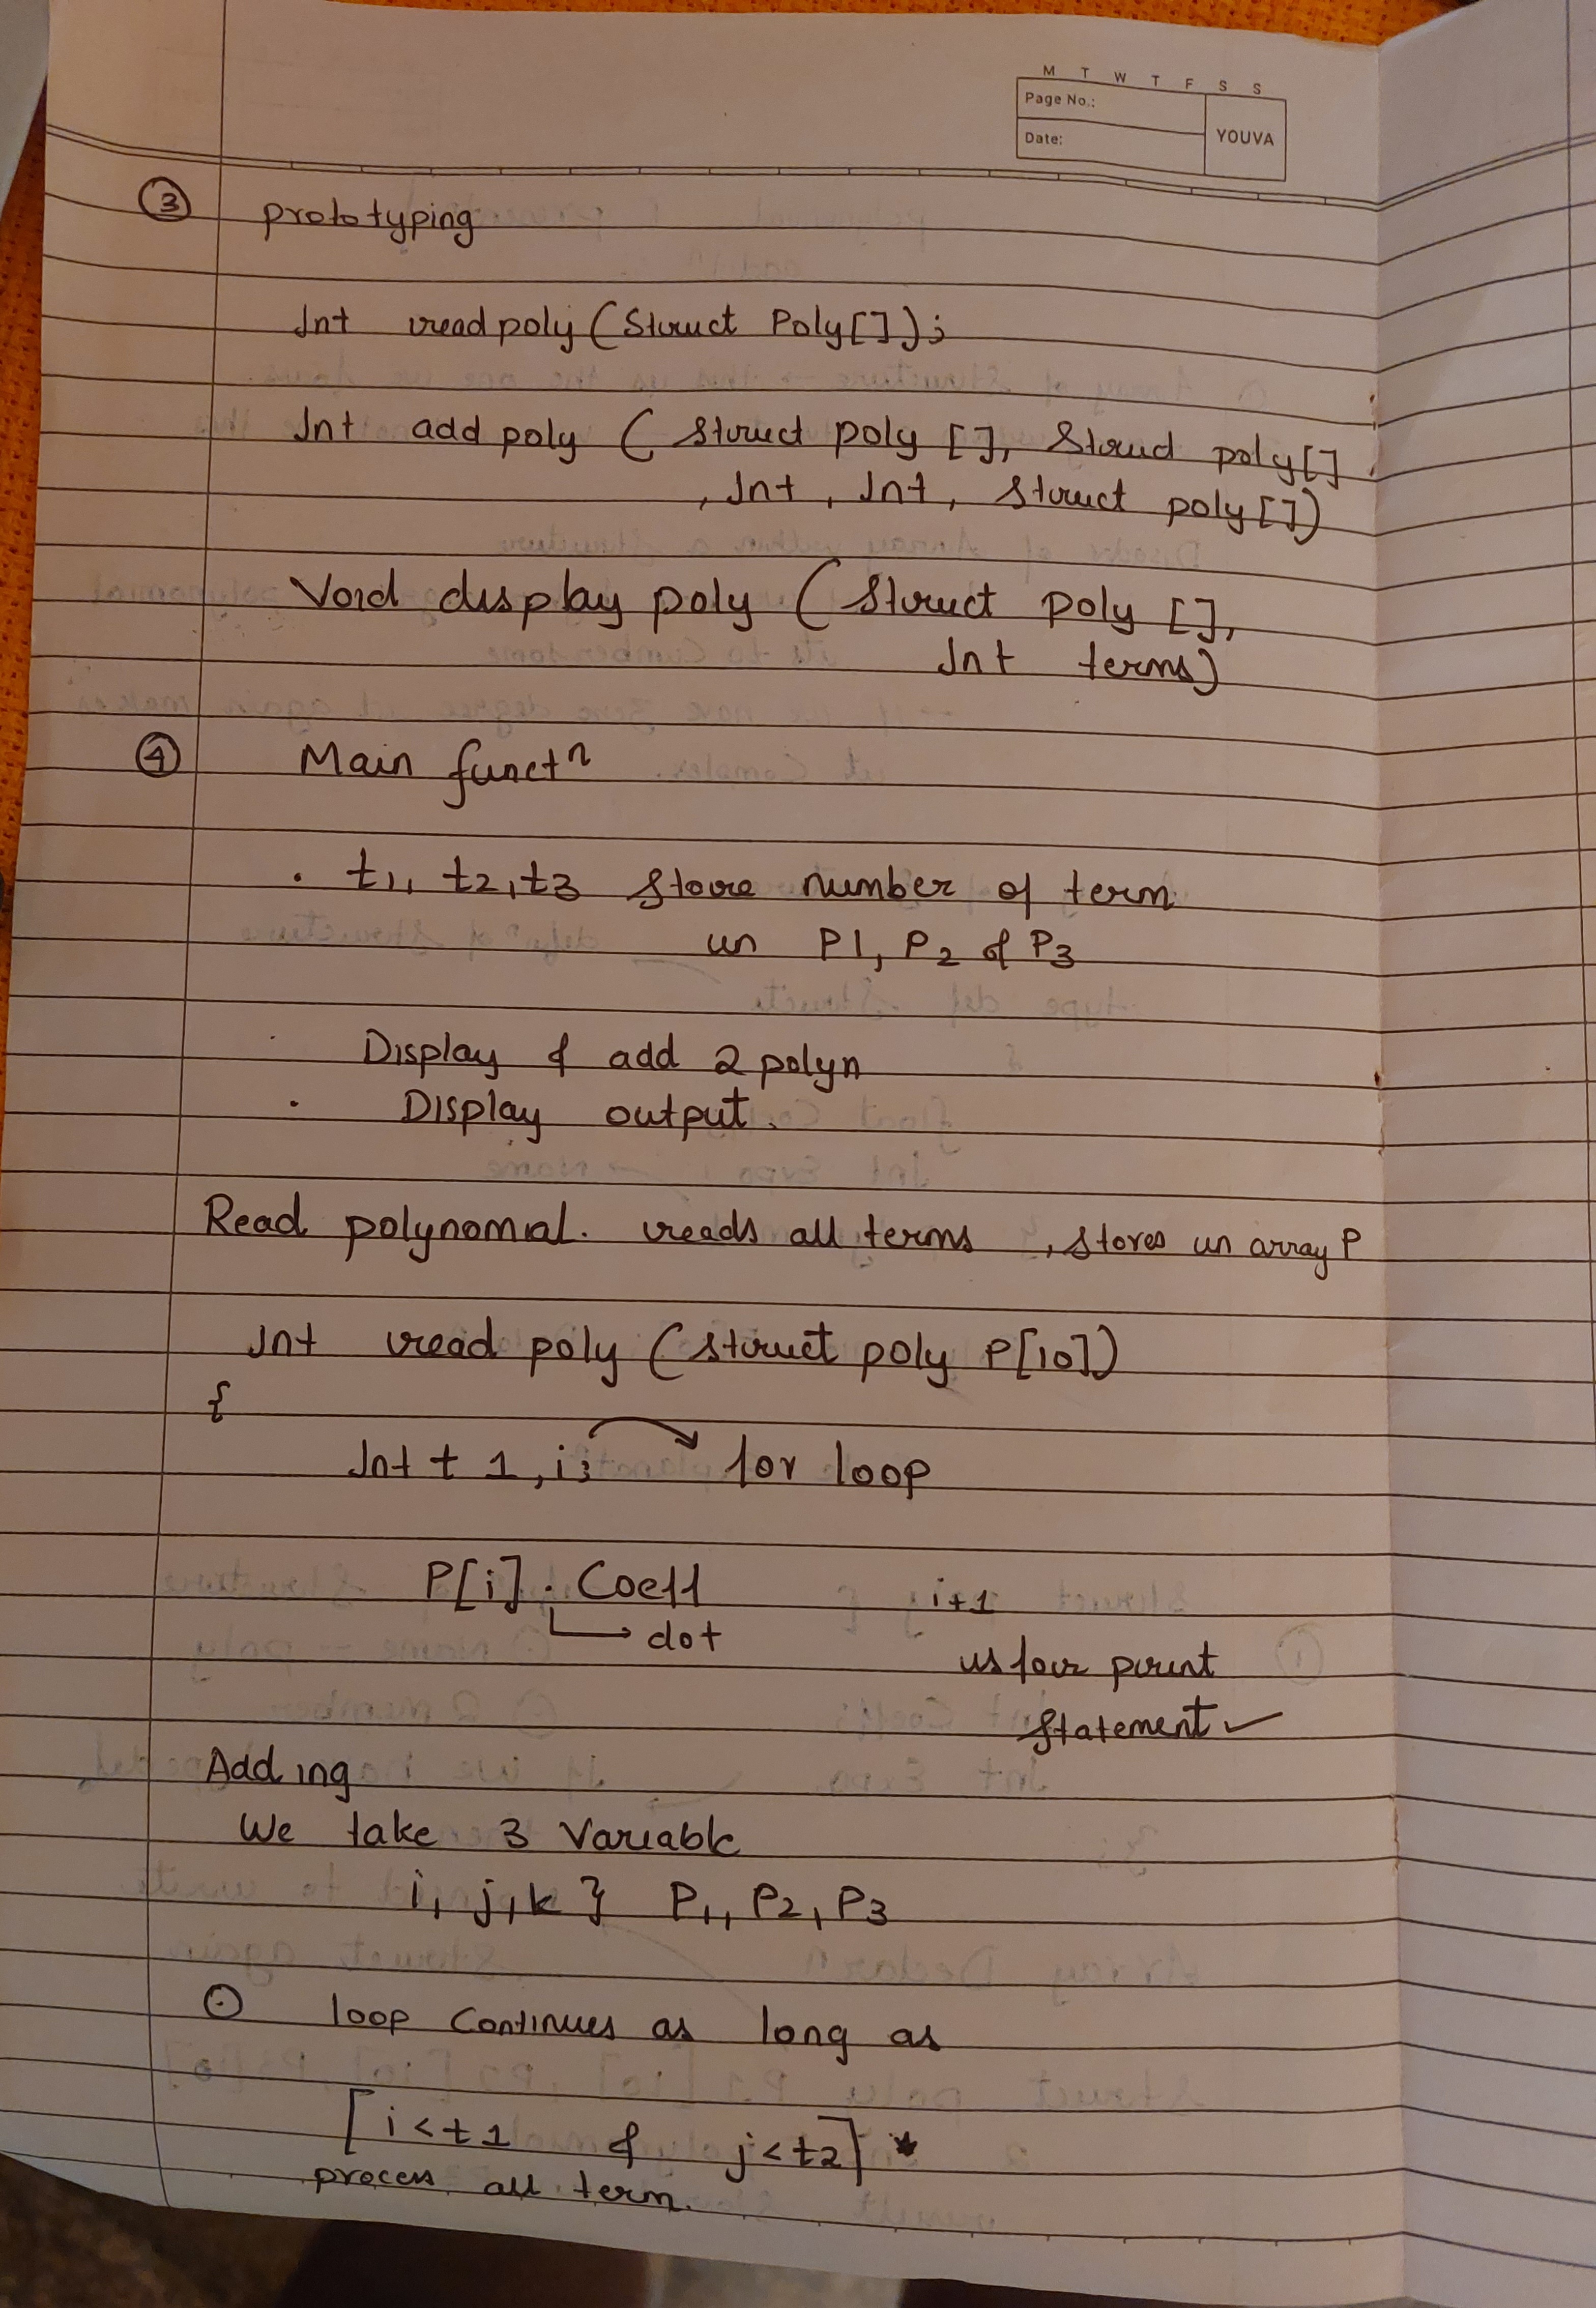 M T W T F S S
Page No.:
Date:
YOUVA
③ prototyping
Int readpoly (Struct Poly[]);
Int add poly ( struct poly [], Struct poly[]
, Int, Int, struct poly[])
Void display poly ( struct poly [],
Int terms)
④ Main functn
. t1, t2, t3 store number of term
in P1, P2 & P3
. Display & add 2 polyn
. Display output.
Read polynomial. reads all terms , stores in array P
Int read poly (struct poly P[10])
{
Int t 1, i; for loop
P[i] . Coeff i+1
dot
is for print
statement ✓
Adding
We take 3 Variable
i, j, k } P1, P2, P3
⊙ loop Continues as long as
[ i<t1 & j<t2] *
process all term.